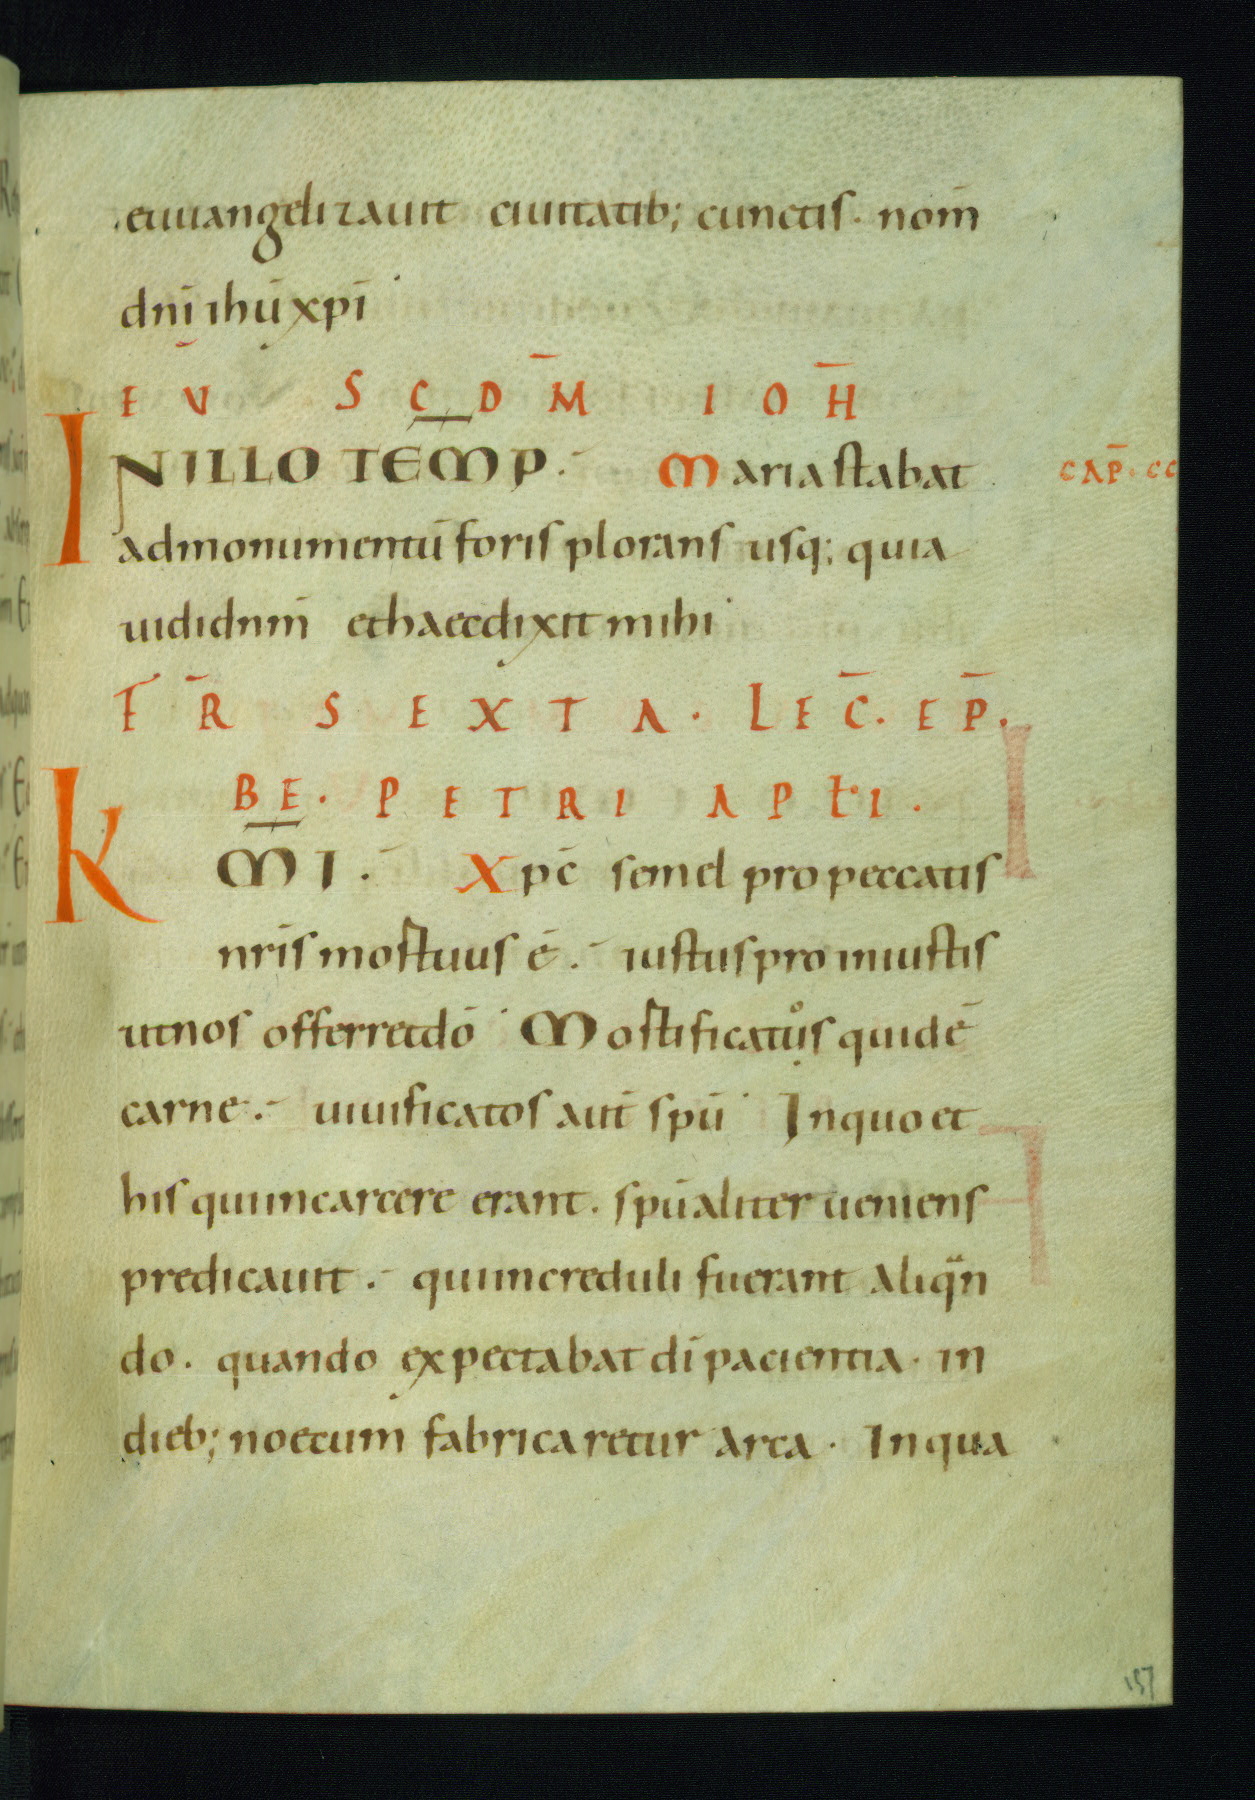 euuangelizauit ciuitatib; cunctis. nom̄
dnī ihū xpī
EV̄ SCDM̄ IOH̄
IN ILLO TEMP. Maria stabat
CAP̄. CC
ad monumentū foris plorans usq; quia
uidi dnm̄ et haec dixit mihi
FR̄ SEXTA. LEC̄. EP̄.
BE. PETRI APLI.
KMI. Xpc̄ semel pro peccatis
nrīs mortuus ē. iustus pro iniustis
ut nos offerret dō Mortificatus quidē
carne. uiuificatos aut̄ spū In quo et
his qui in carcere erant. spūaliter ueniens
predicauit. qui increduli fuerant aliqn
do. quando expectabat dī pacientia. in
dieb; noe cum fabricaretur arca. In qua
157